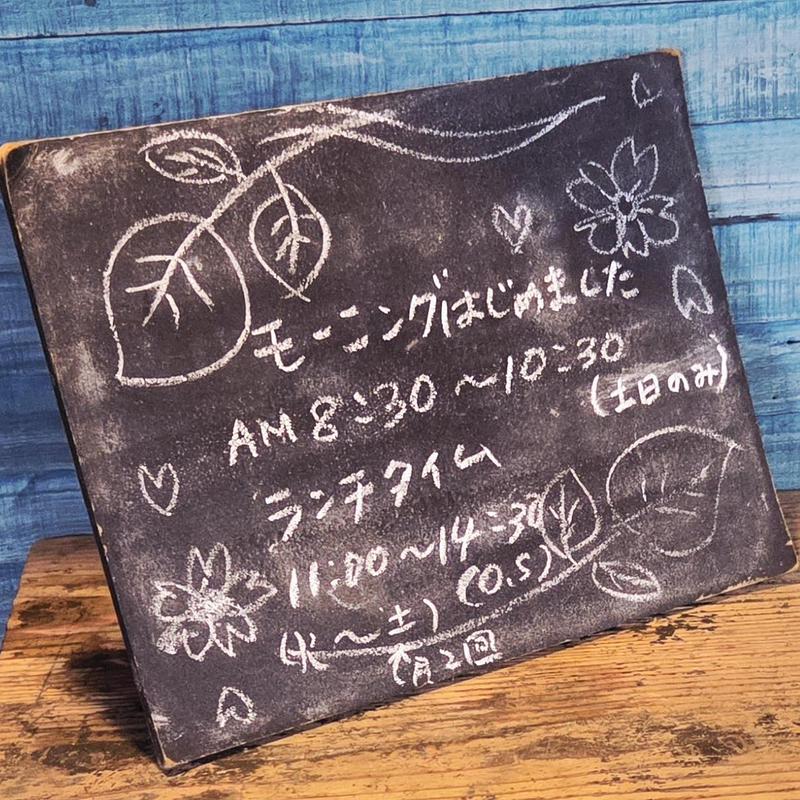 モーニングはじめました
AM 8:30 ～10:30
(土日のみ)
ランチタイム
11:00～14:30
(O.S)
(火～土)
(月2回